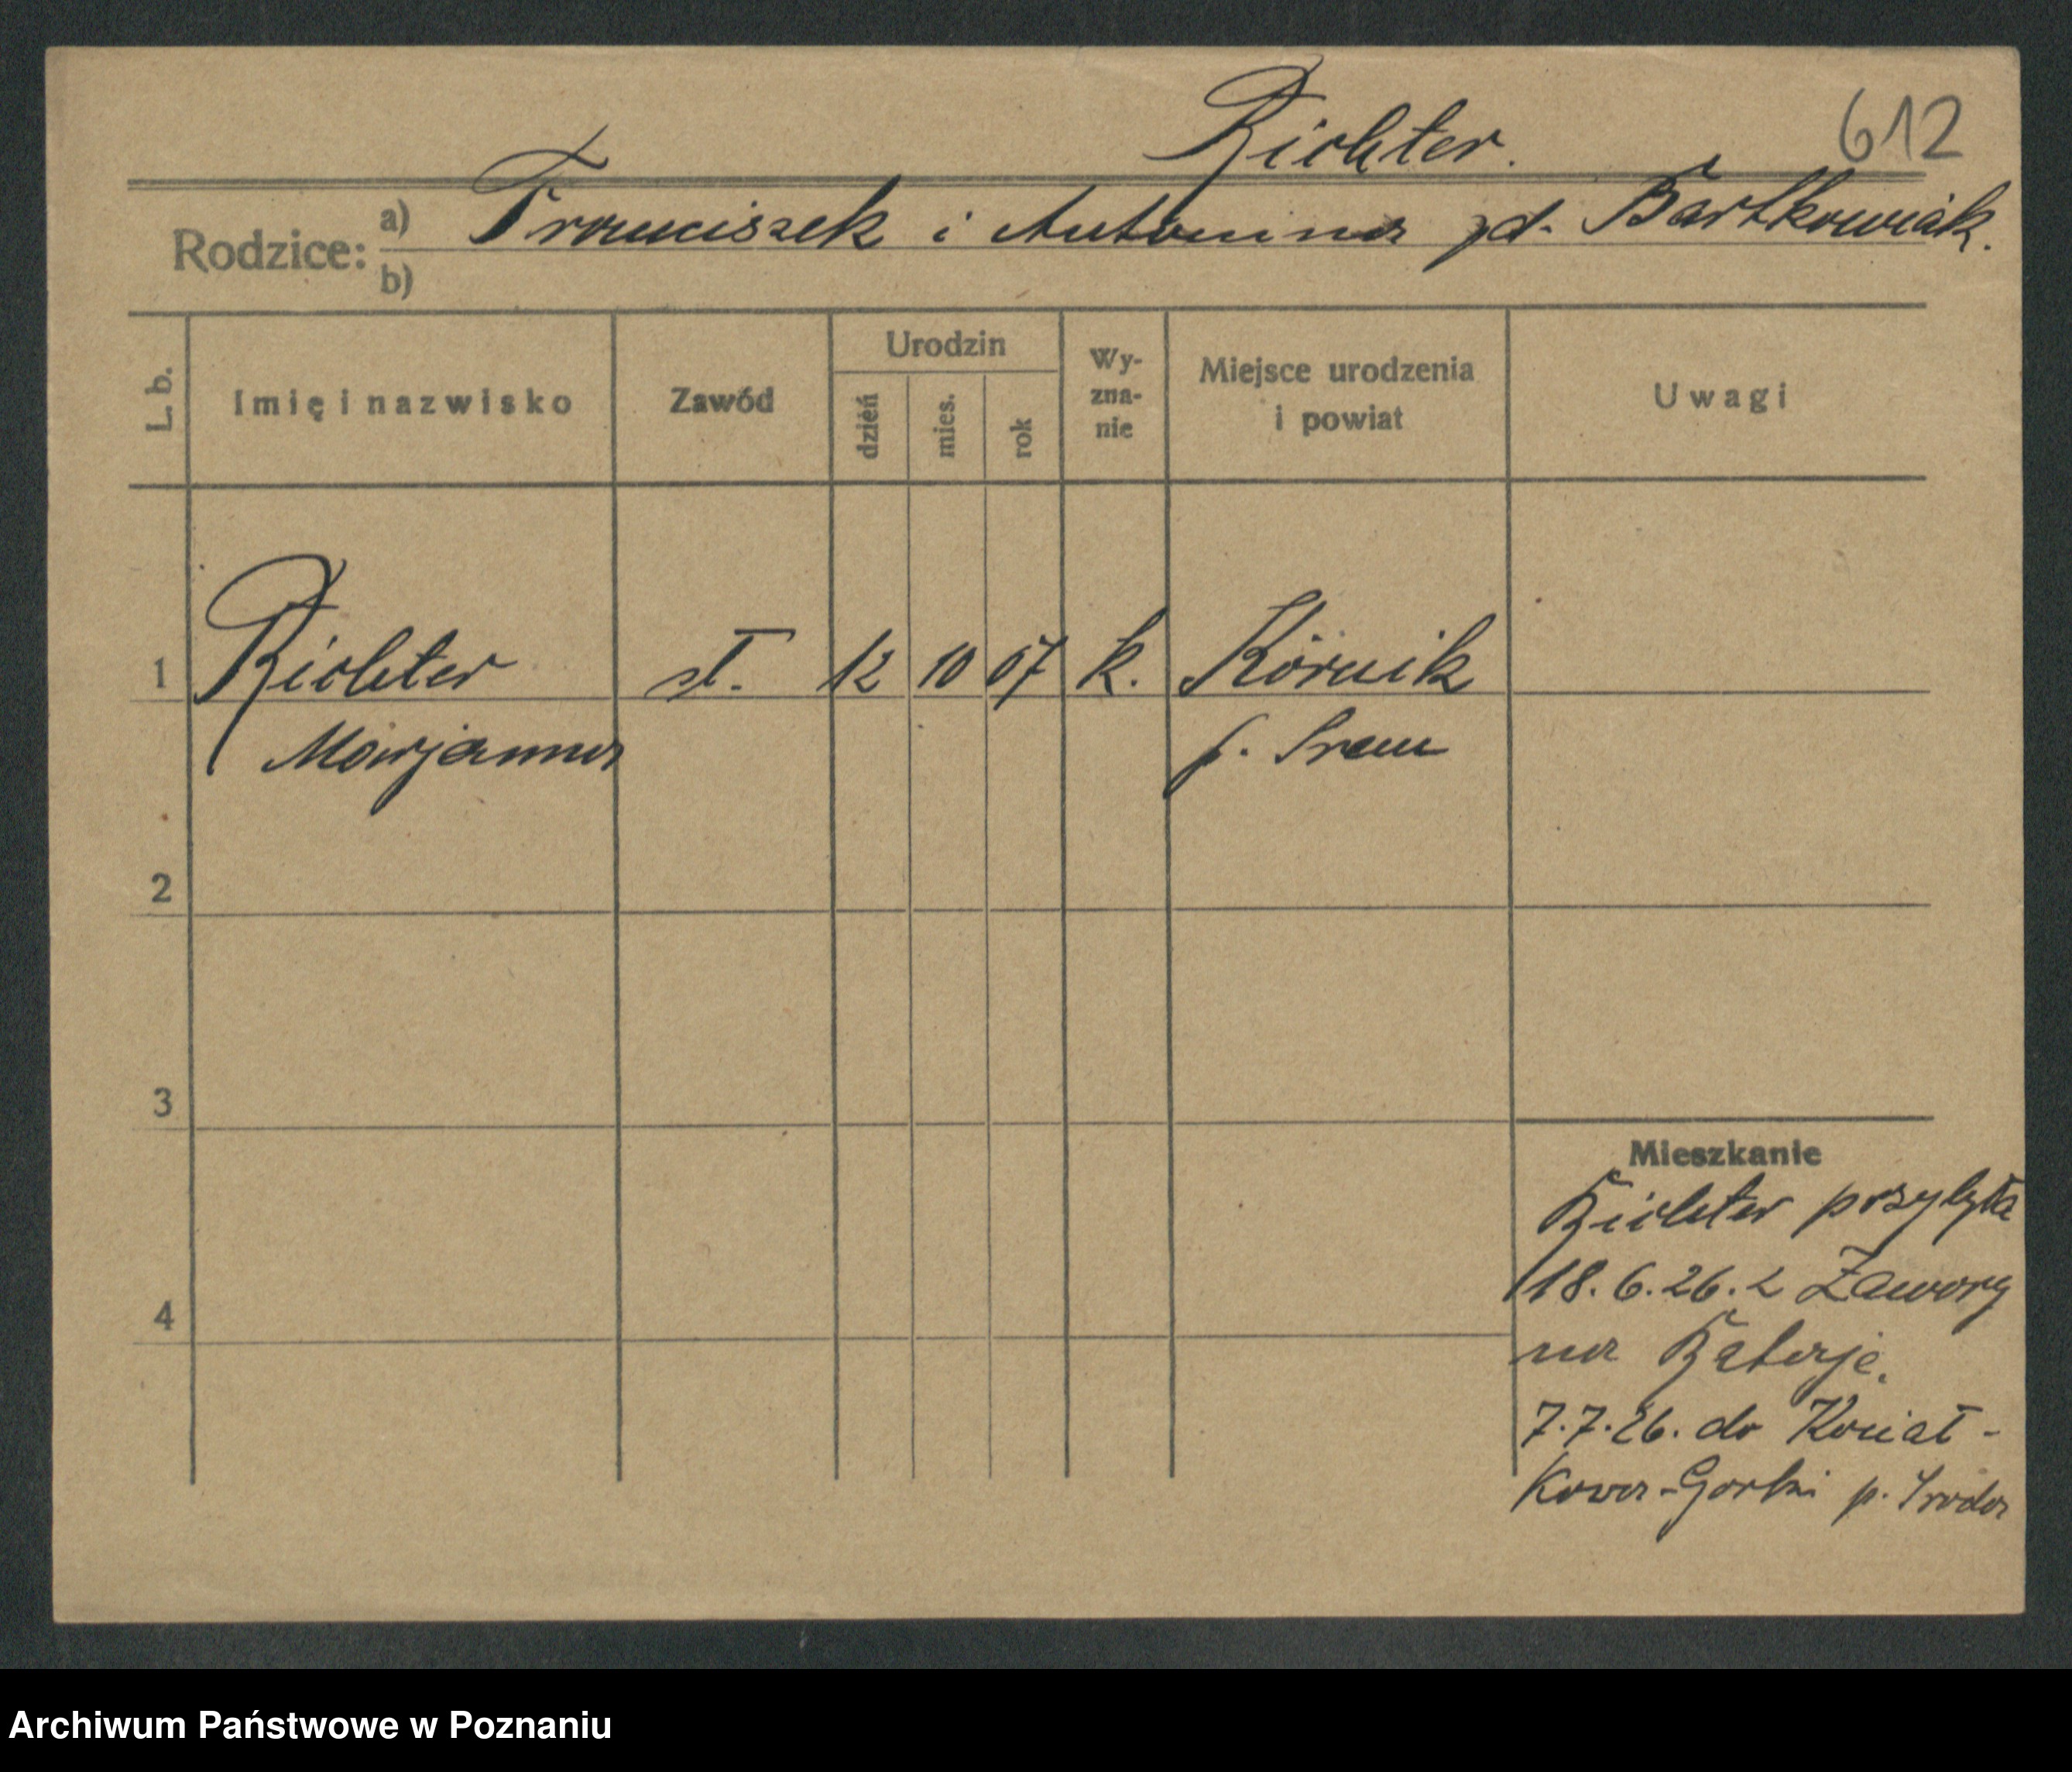 Richter.
612
Rodzice: a) Franciszek i Antonina zd. Bartkowiak.
b)
L. b. Imię i nazwisko Zawód Urodzin dzień mies. rok Wy-zna-nie Miejsce urodzenia i powiat Uwagi
1 Richter sł. 12 10 07 k. Kórnik
Marjanna p. Srem
2
3
Mieszkanie
Richter przybyła
18.6.26. z Zawory
4
na Baterje.
7.7.26. do Koniat-
Kowa-Gorki p. Sroda
Archiwum Państwowe w Poznaniu